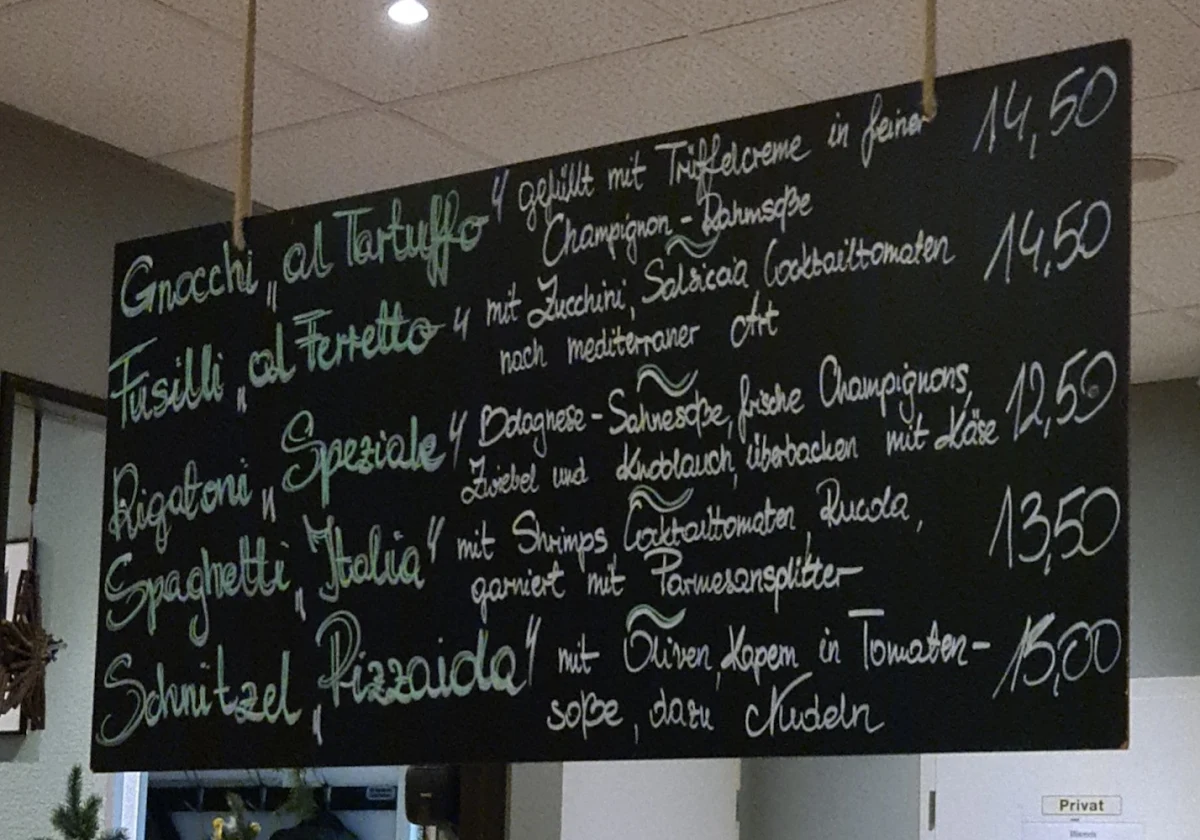 Gnocchi „al Tartuffo" gefüllt mit Trüffelcreme in feiner 14,50
Champignon - Rahmsoße
Fusilli „al Ferretto" mit Zucchini, Salsiccia, Cocktailtomaten 14,50
nach mediterraner Art
Rigatoni „Speziale" Bolognese - Sahnesoße, frische Champignons, 12,50
Zwiebel und Knoblauch, überbacken mit Käse
Spaghetti „Italia" mit Shrimps, Cocktailtomaten, Rucola, 13,50
garniert mit Parmesansplitter
Schnitzel „Pizzaiola" mit Oliven, Kapern in Tomaten- 15,00
soße, dazu Nudeln
Privat